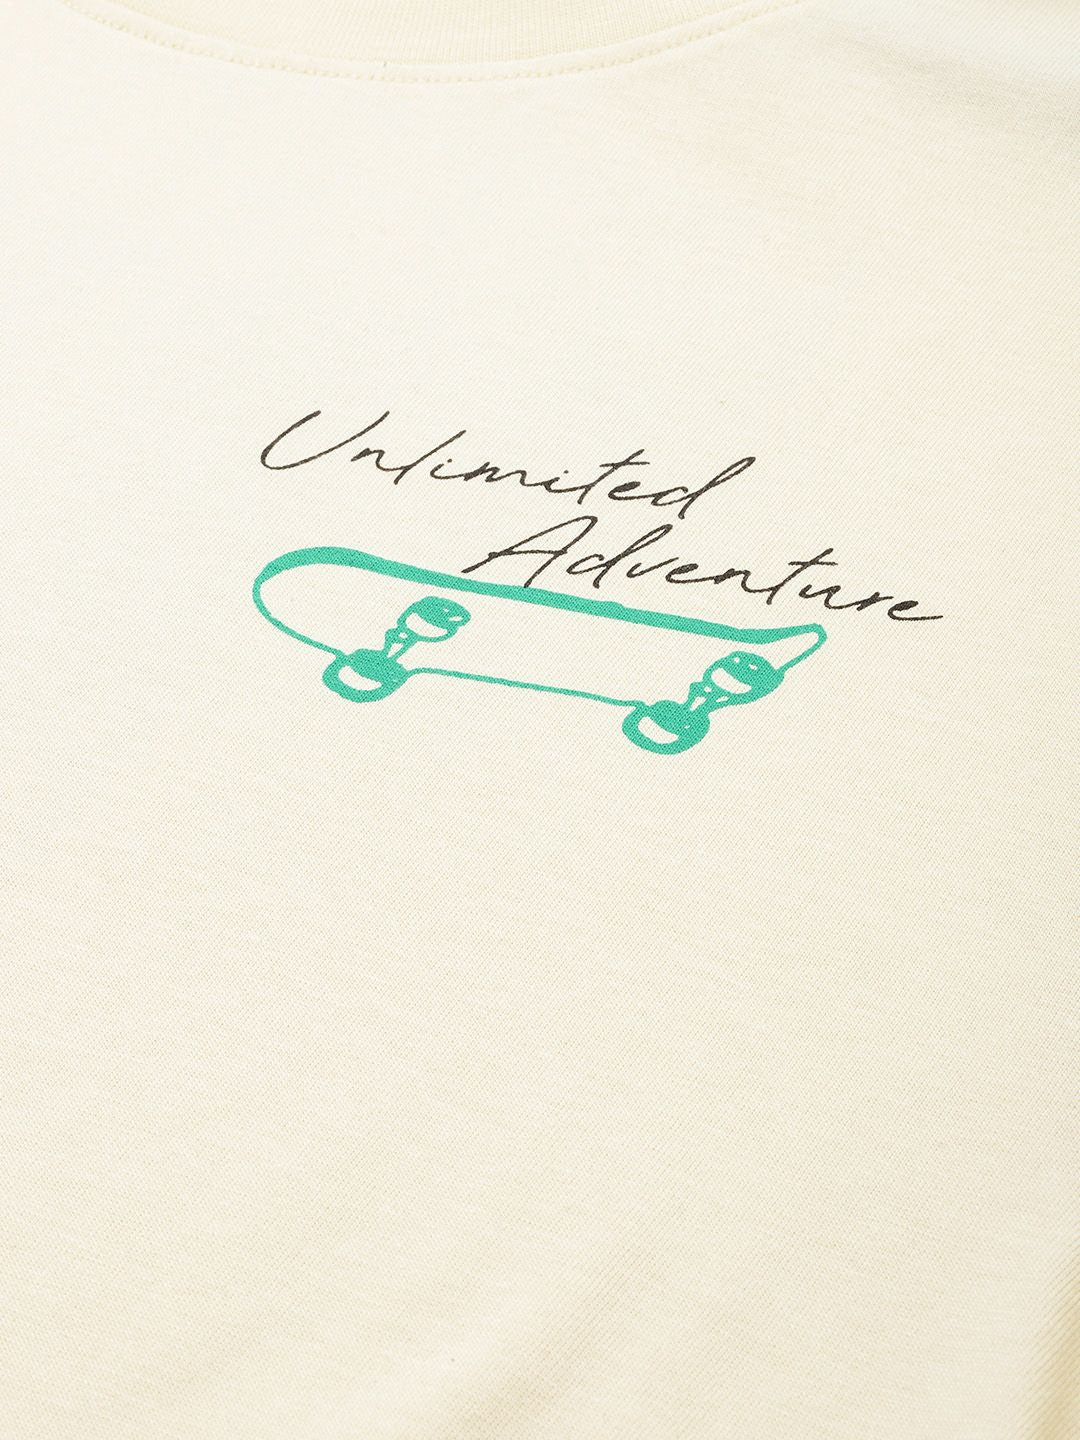 Unlimited
Adventure